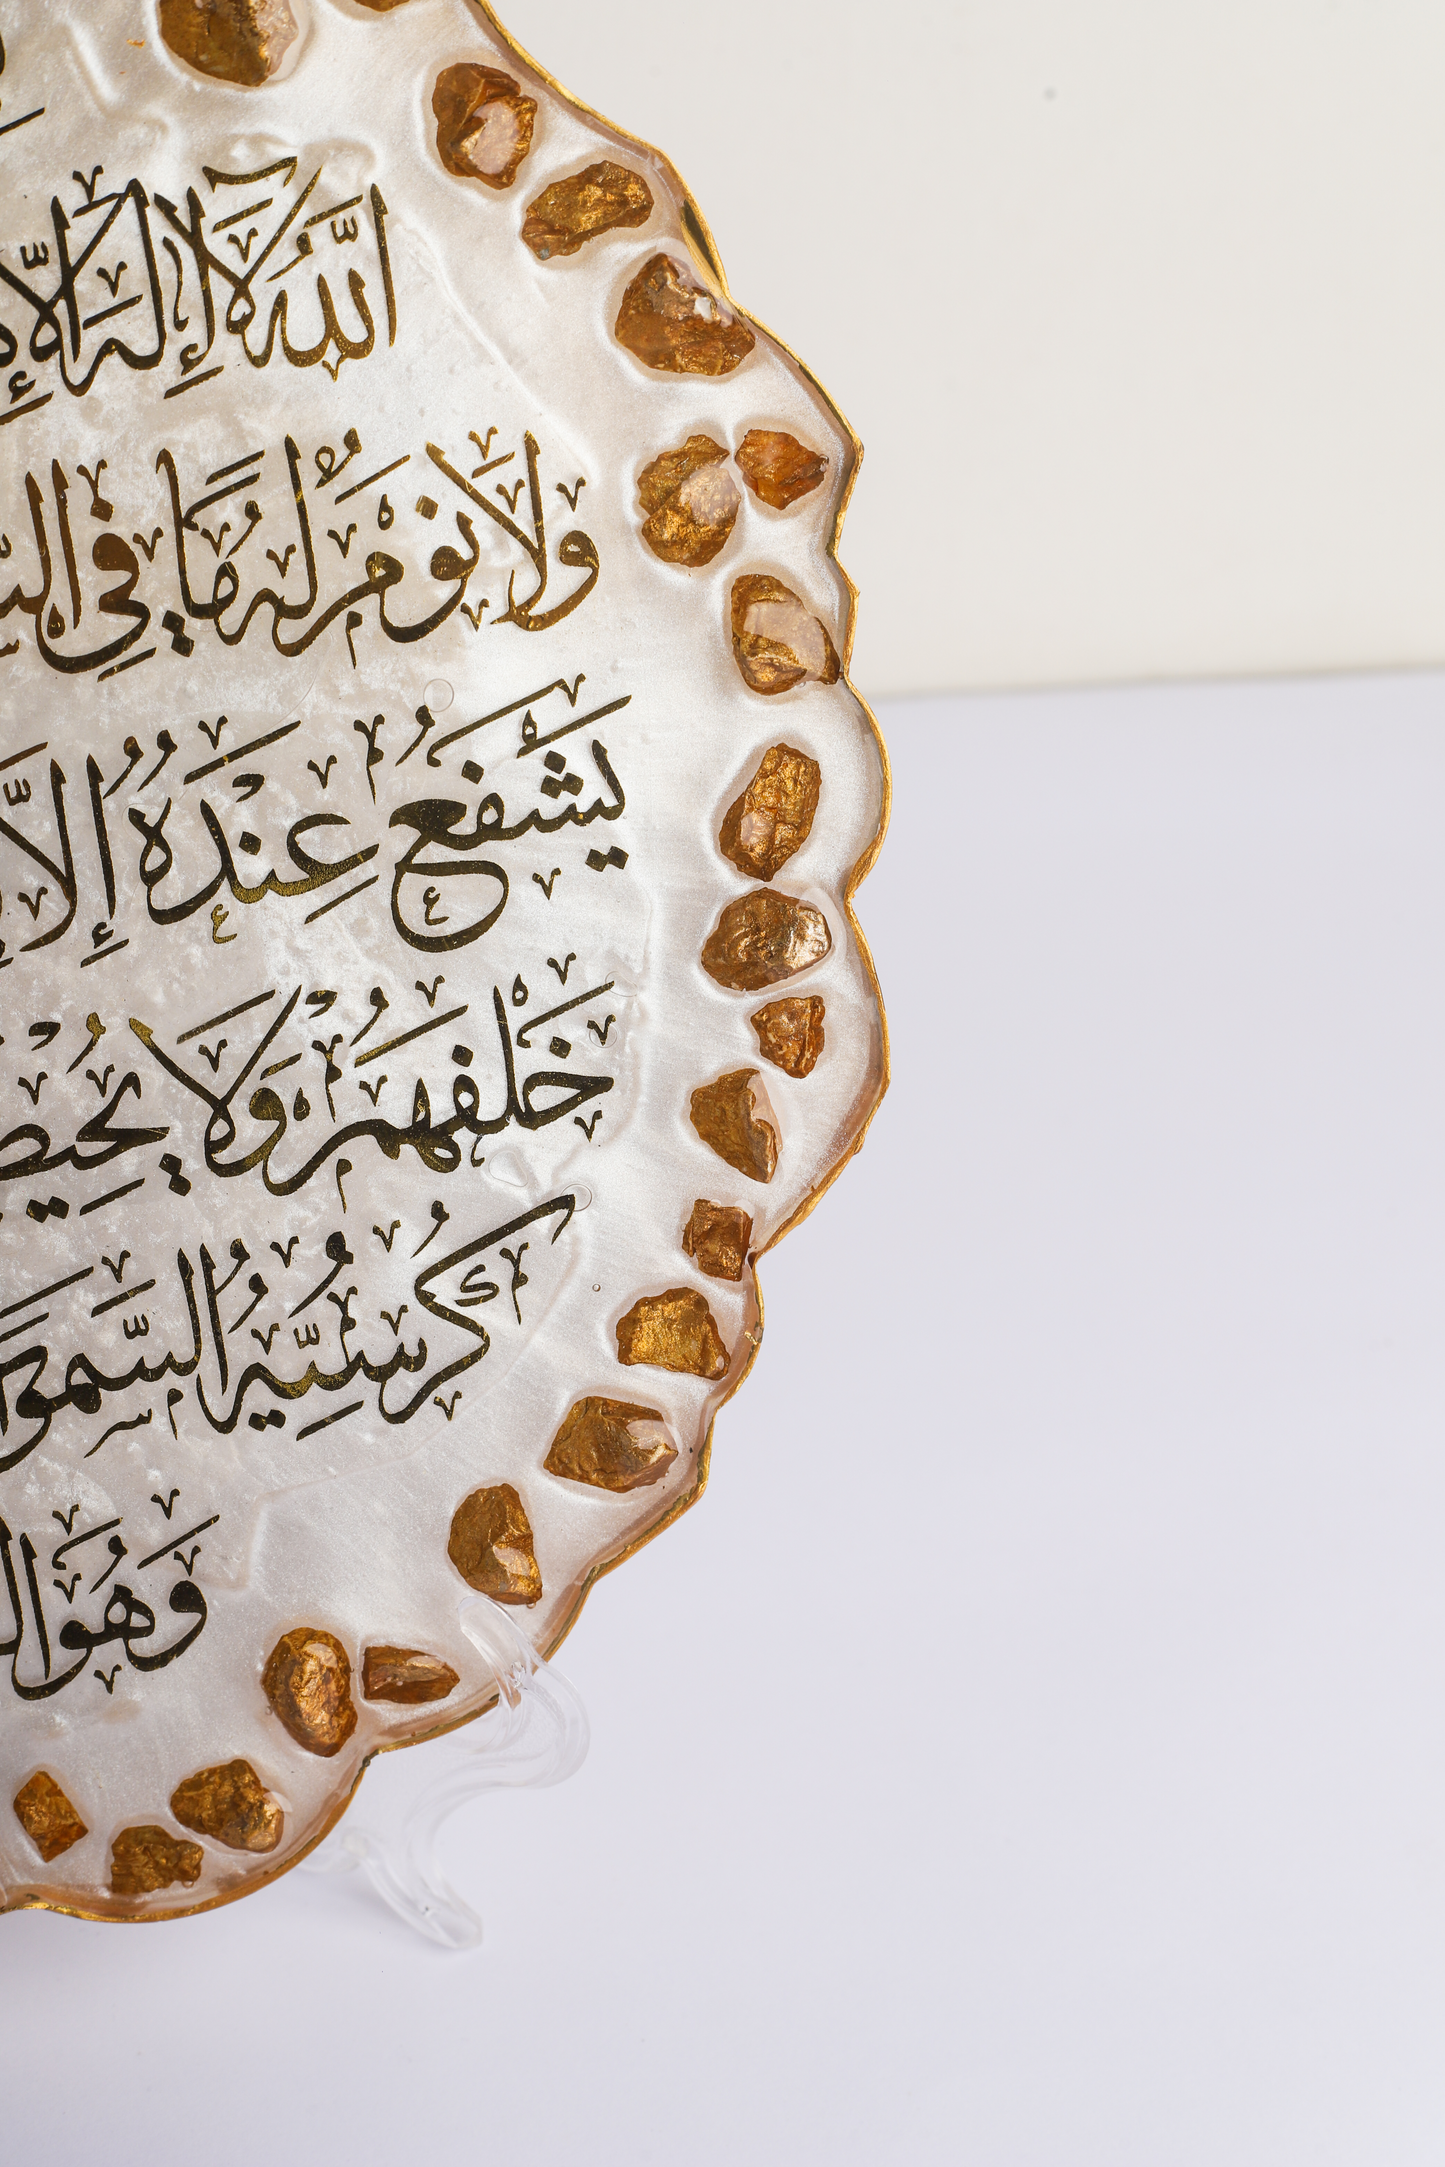 اللَّهُ لَآ إِلَهَ إِلَّا
وَلَا نَوْمٌ لَهُ مَا فِي
يَشْفَعُ عِنْدَهُ إِلَّا
خَلْفَهُمْ وَلَا
كُرْسِيُّهُ السَّمَوَا
وَهُوَ